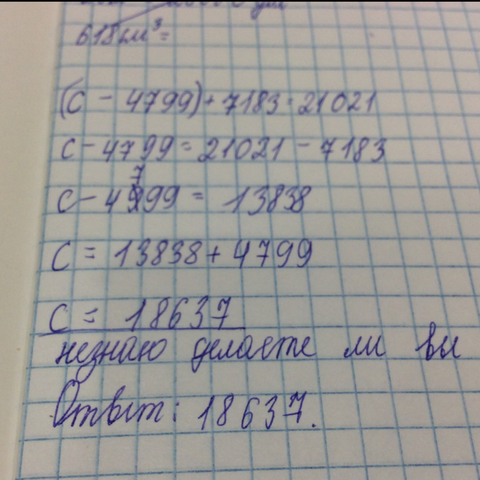 618 см³=
(с - 4799) + 7183 = 21021
с - 4799 = 21021 - 7183
с - 4799 = 13838
с = 13838 + 4799
с = 18637
незнаю делаете ли вы
Ответ: 18637.